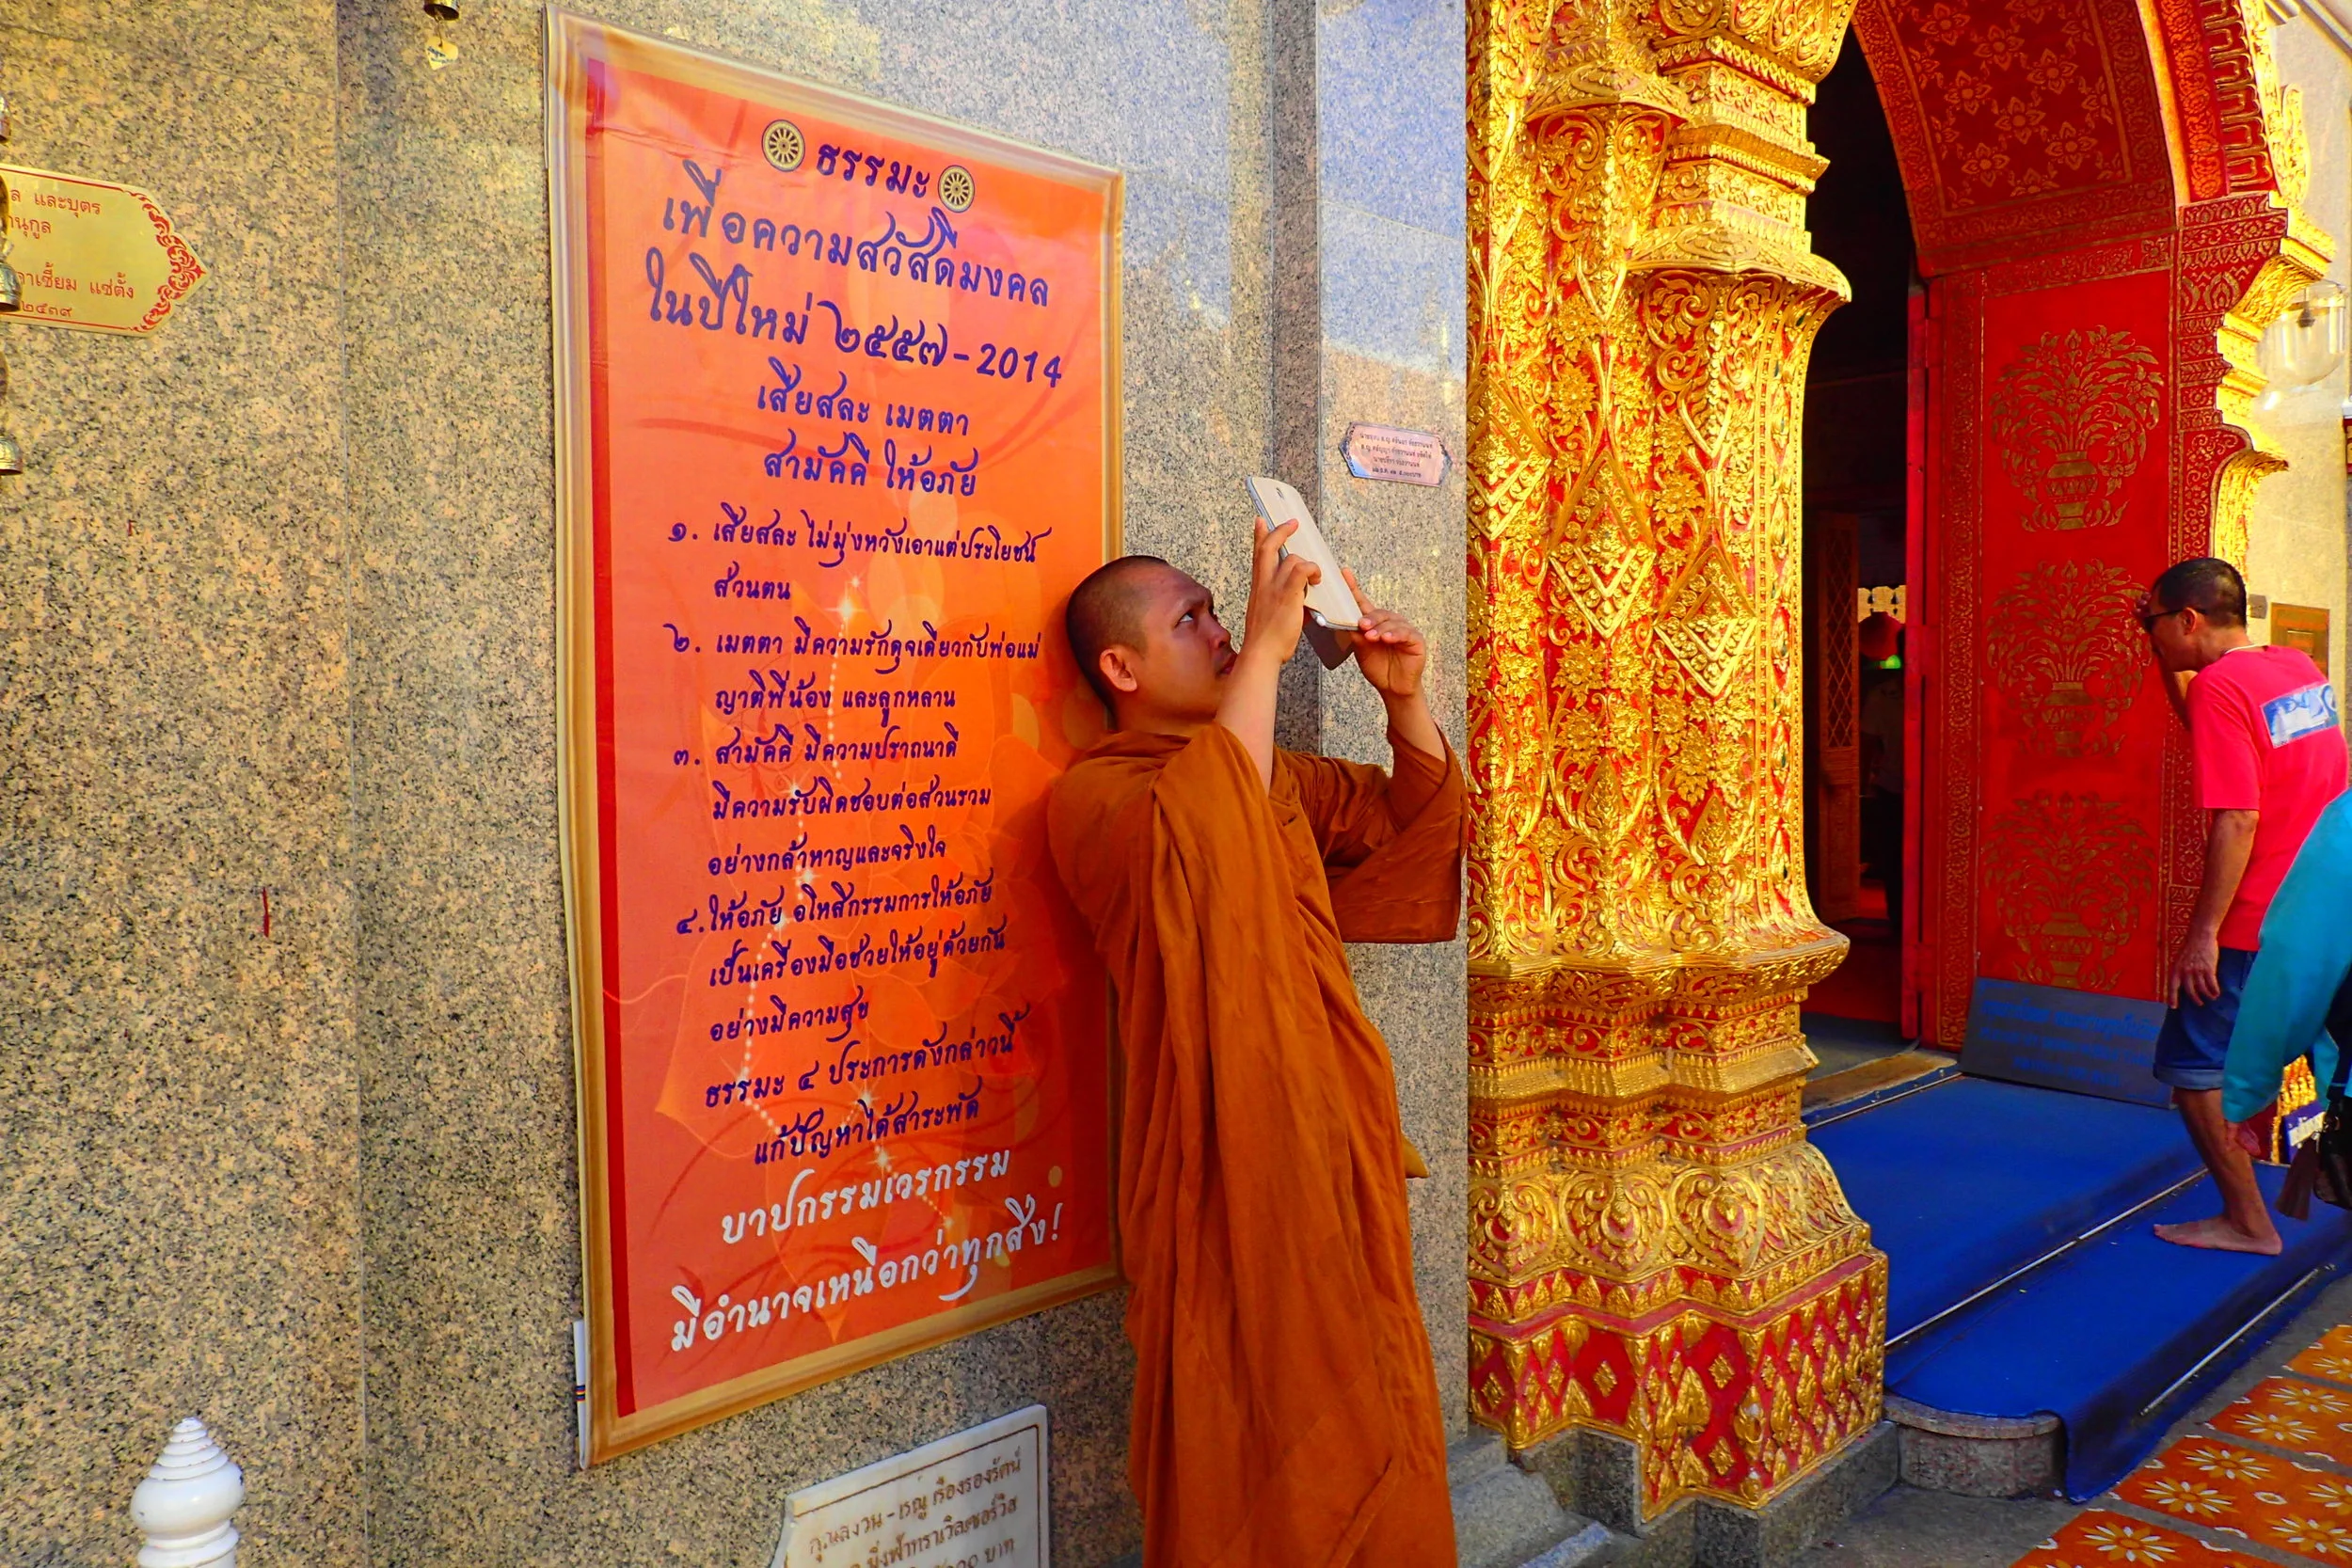 ล และบุตร
านุกูล
าเซี้ยม แซ่ตั้ง
๒๕๓๙
ธรรมะ
เพื่อความสวัสดีมงคล
ในปีใหม่ ๒๕๕๗ - 2014
เสียสละ เมตตา
สามัคคี ให้อภัย
๑. เสียสละ ไม่มุ่งหวังเอาแต่ประโยชน์
ส่วนตน
๒. เมตตา มีความรักดุจเดียวกับพ่อแม่
ญาติพี่น้อง และลูกหลาน
๓. สามัคคี มีความปรารถนาดี
มีความรับผิดชอบต่อส่วนรวม
อย่างกล้าหาญและจริงใจ
๔. ให้อภัย อโหสิกรรมการให้อภัย
เป็นเครื่องมือช่วยให้อยู่ด้วยกัน
อย่างมีความสุข
ธรรมะ ๔ ประการดังกล่าวนี้
แก้ปัญหาได้สาระพัด
บาปกรรมเวรกรรม
มีอำนาจเหนือกว่าทุกสิ่ง!
คุณสงวน - เรณู เรืองรองรัตน์
บาท